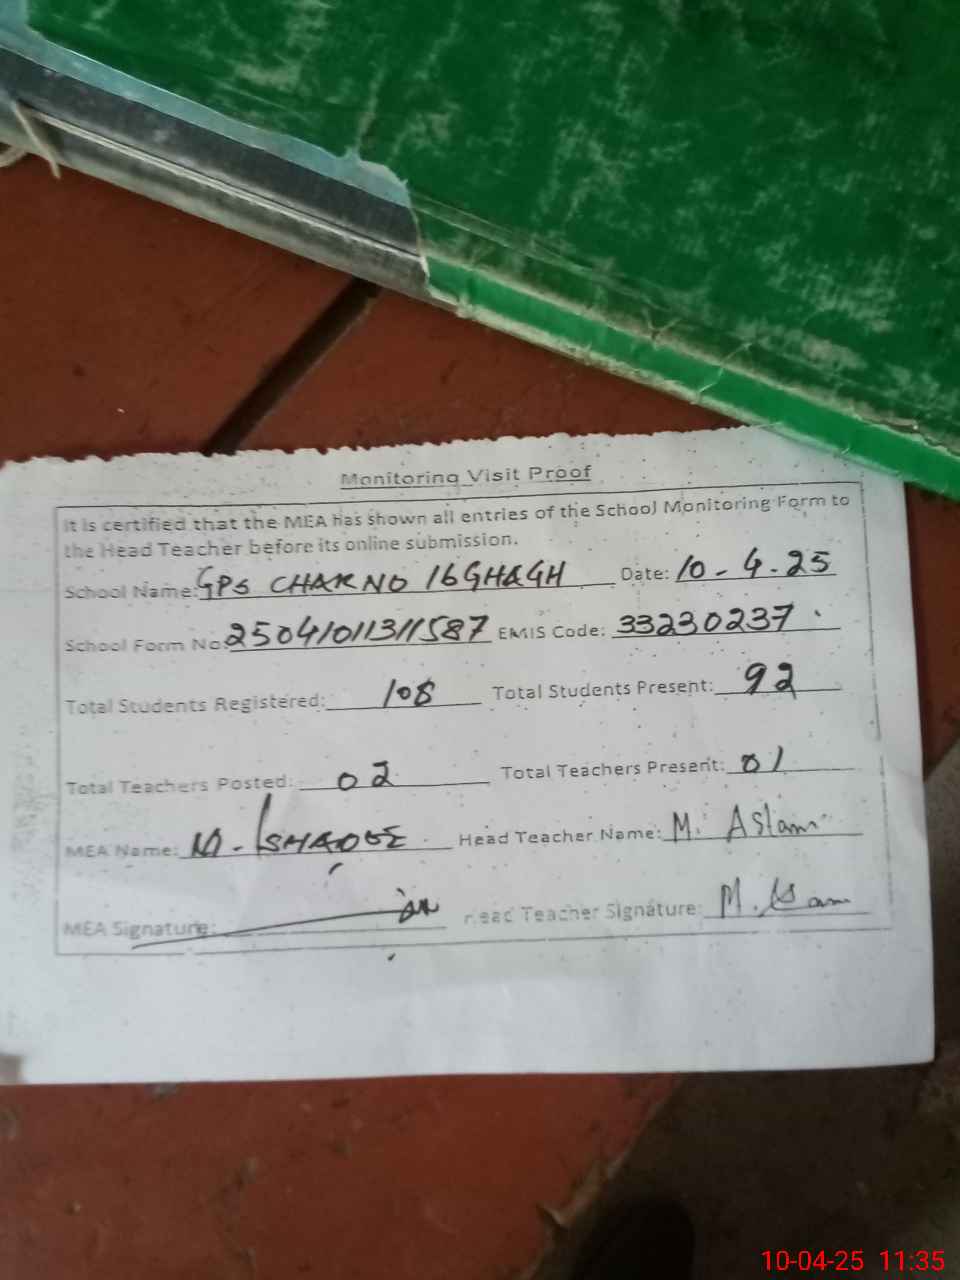 Monitoring Visit Proof
It is certified that the MEA has shown all entries of the School Monitoring Form to
the Head Teacher before its online submission.
School Name: GPS CHAK NO 16 GHAGH Date: 10-4-25
School Form No: 25041011311587 EMIS Code: 33230237
Total Students Registered: 108 Total Students Present: 92
Total Teachers Posted: 02 Total Teachers Present: 01
MEA Name: M. Head Teacher Name: M. Aslam
MEA Signature: Head Teacher Signature: M. Aslam
10-04-25 11:35